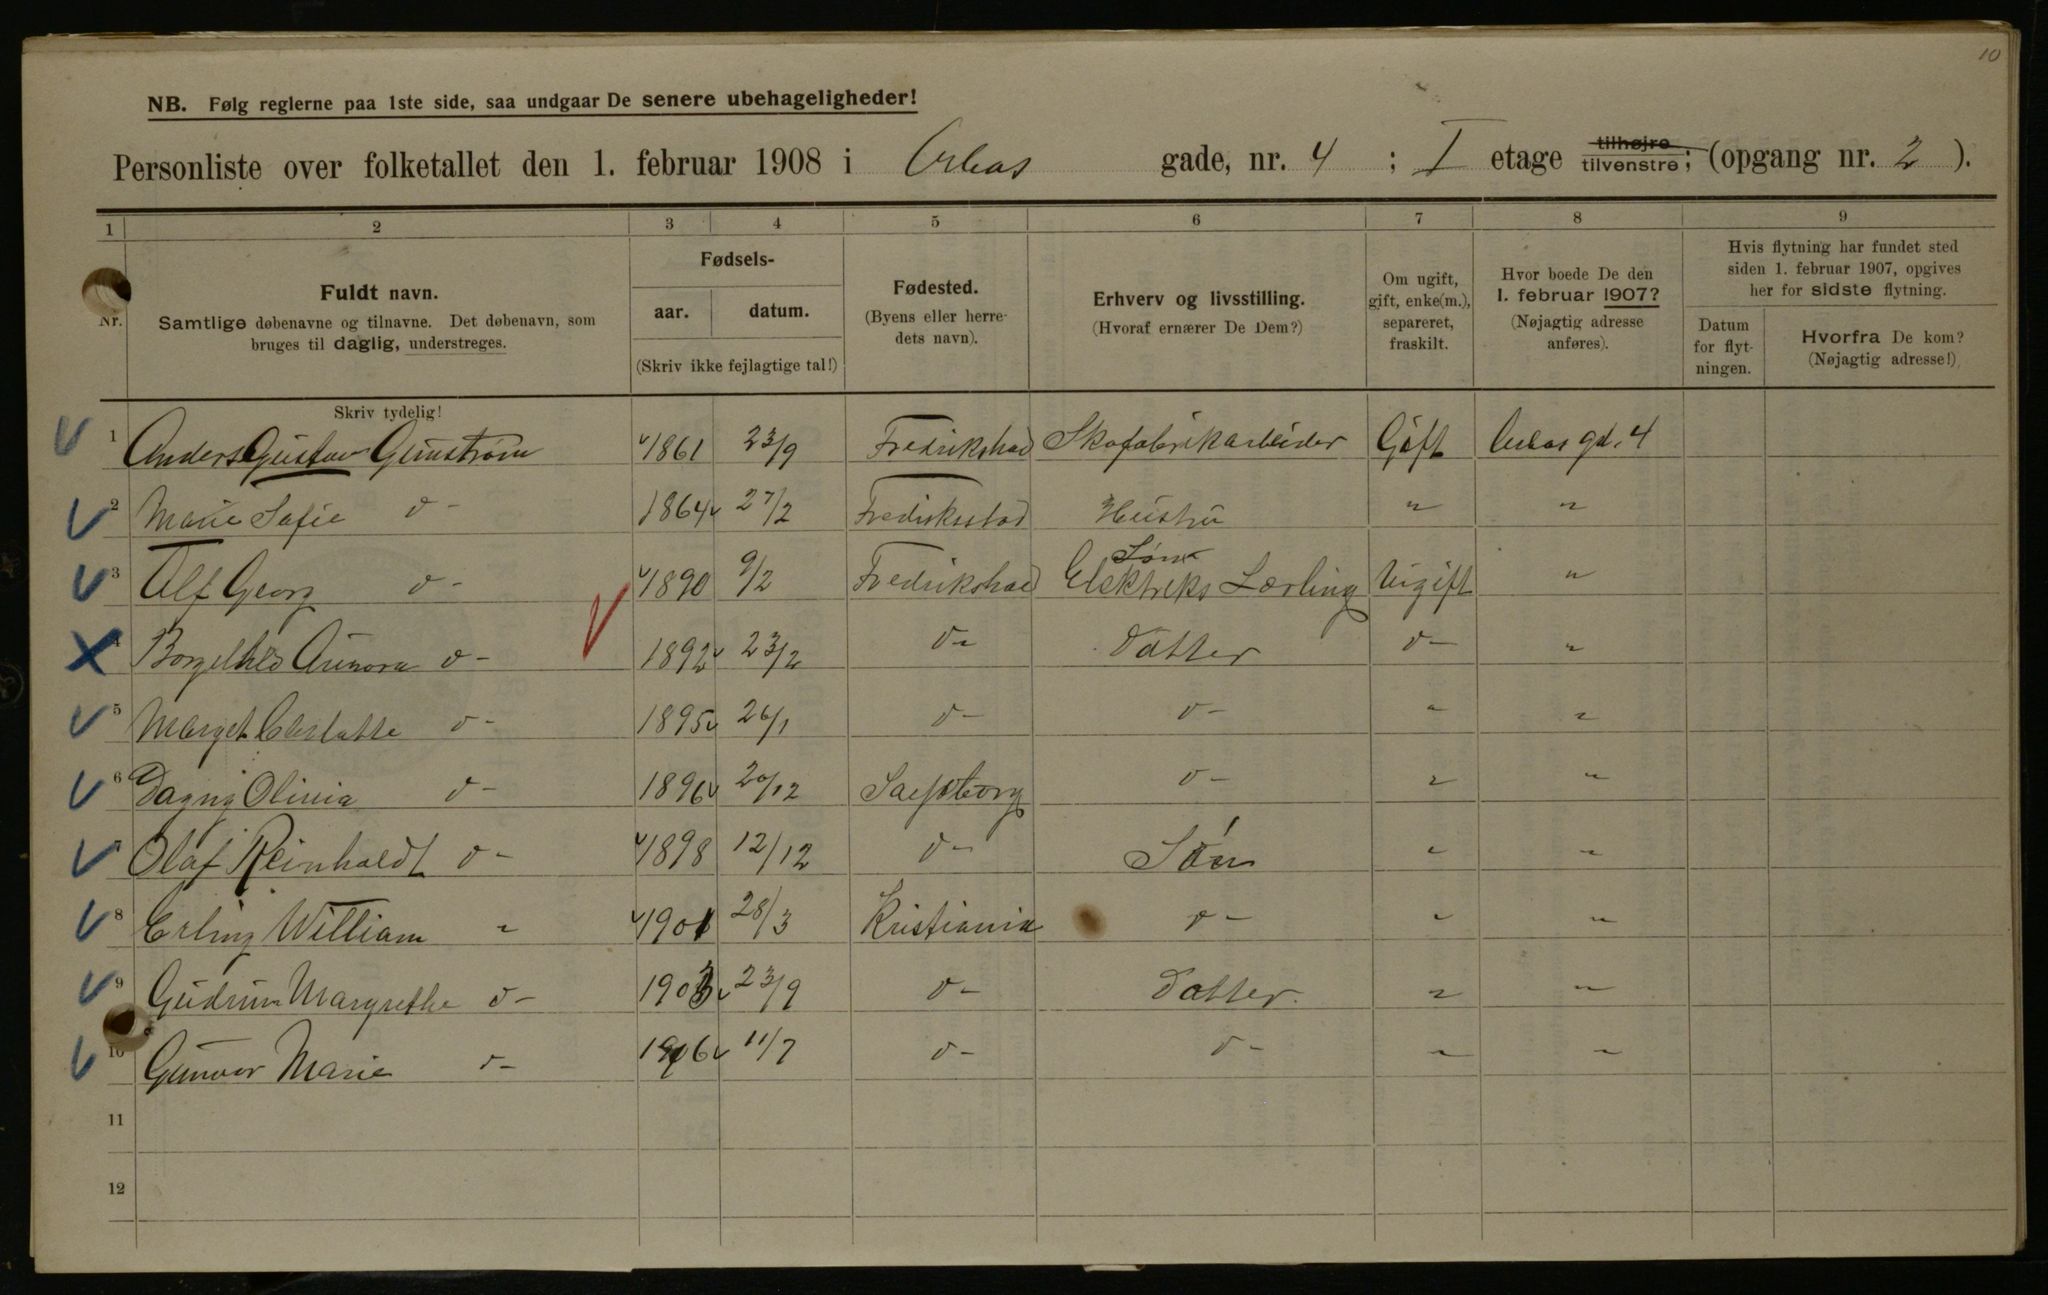 10
NB. Følg reglerne paa 1ste side, saa undgaar De senere ubehageligheder!
Personliste over folketallet den 1. februar 1908 i Orkas gade, nr. 4 ; I etage tilhøjre tilvenstre; (opgang nr. 2 ).
1 2 3 4 5 6 7 8 9
Nr. Fuldt navn. Samtlige døbenavne og tilnavne. Det døbenavn, som bruges til daglig, understreges.
Skriv tydelig!
Fødsels- aar. datum. (Skriv ikke fejlagtige tal!)
Fødested. (Byens eller herredets navn).
Erhverv og livsstilling. (Hvoraf ernærer De Dem?)
Om ugift, gift, enke(m.), separeret, fraskilt.
Hvor boede De den 1. februar 1907? (Nøjagtig adresse anføres).
Hvis flytning har fundet sted siden 1. februar 1907, opgives her for sidste flytning.
Datum for flytningen. Hvorfra De kom? (Nøjagtig adresse!)
1 Anders Gustav 1861 23/9 Fredrikshad Skofabrikarbeider Gift gd. 4
2 Marie Sofie d- 1864 27/2 Fredriksstad Hustru " "
3 Alf Georg d- 1890 9/2 Fredrikshad Søn Elektriks Lærling Ugift "
4 Borgelhld Aurora d- 1892 23/2 d- Datter d- "
5 Marget Charlotte d- 1895 26/1 d- d- " "
6 Dagny Olivia d- 1896 20/12 Sarpsborg d- " "
7 Olaf Reinholdt d- 1898 12/12 d- Søn " "
8 Erling William " 1901 28/3 Kristiania d- " "
9 Gudrun Margrethe d- 1903 23/9 d- Datter. " "
10 Gunvor Marie d- 1906 11/7 d- d- " "
11
12